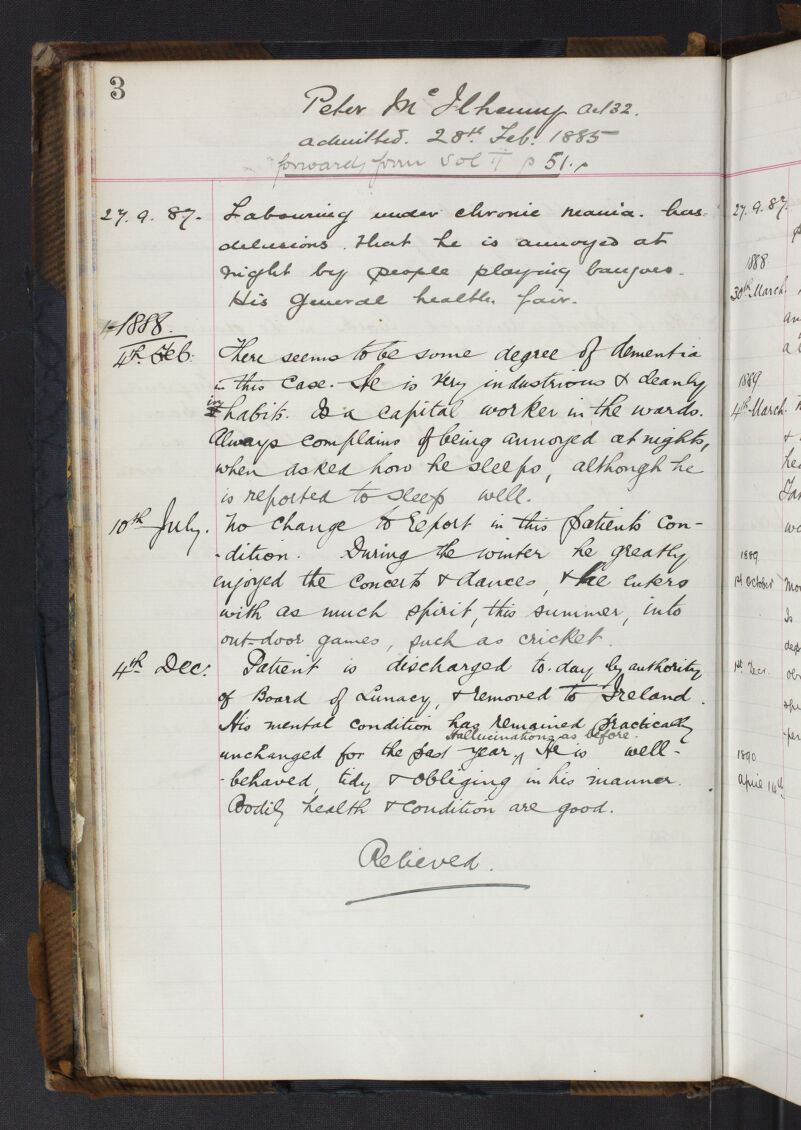 3
Peter McIlhenny aet 32.
admitted. 28th Feb. 1885
forward from Vol II p 51.
27. 9. 87. Labouring under chronic mania. has
delusions that he is annoyed at
night by people playing banjoes.
His general health fair.
1888.
4th Feb. There seems to be some degree of dementia
in this case. He is very industrious & cleanly
in habits. Is a capital worker in the wards.
Always complains of being annoyed at nights,
when asked how he sleeps, although he
is reported to sleep well.
10th July. No change to report in this patient's con-
-dition. During the winter he greatly
enjoyed the concerts & dances, & he enters
with as much spirit, this summer, into
out-door games, such as cricket.
4th Dec. Patient is discharged to-day by authority
of Board of Lunacy, & removed to Ireland.
His mental condition has remained practically
Hallucinations as before.
unchanged for the past year, He is well-
-behaved, tidy & obliging in his manner.
Bodily health & condition are good.
Relieved.
27. 9. 87.
1888
30th March.
an
a
1889
4th March.
&
hea
wo
1889
1st October Mo
Is
dep
1st Decr. obs
per
1890
April 14th